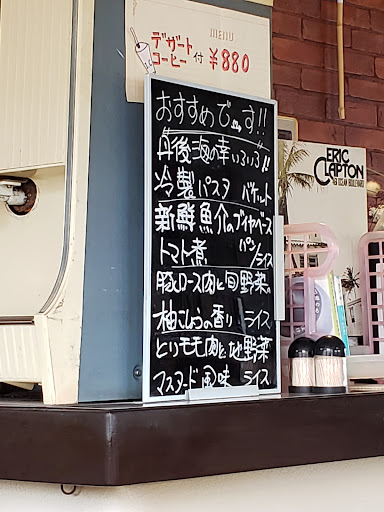 MENU
デザート
コーヒー 付 ¥880
おすすめで〜す!!
丹後海の幸いろいろ!!
冷製パスタ バケット
新鮮魚介のブイヤベース
トマト煮 パン/ライス
豚ロース肉と旬野菜の
柚こしょうの香り ライス
とりモモ肉と地野菜
マスタード風味 ライス
ERIC
CLAPTON
461 OCEAN BOULEVARD